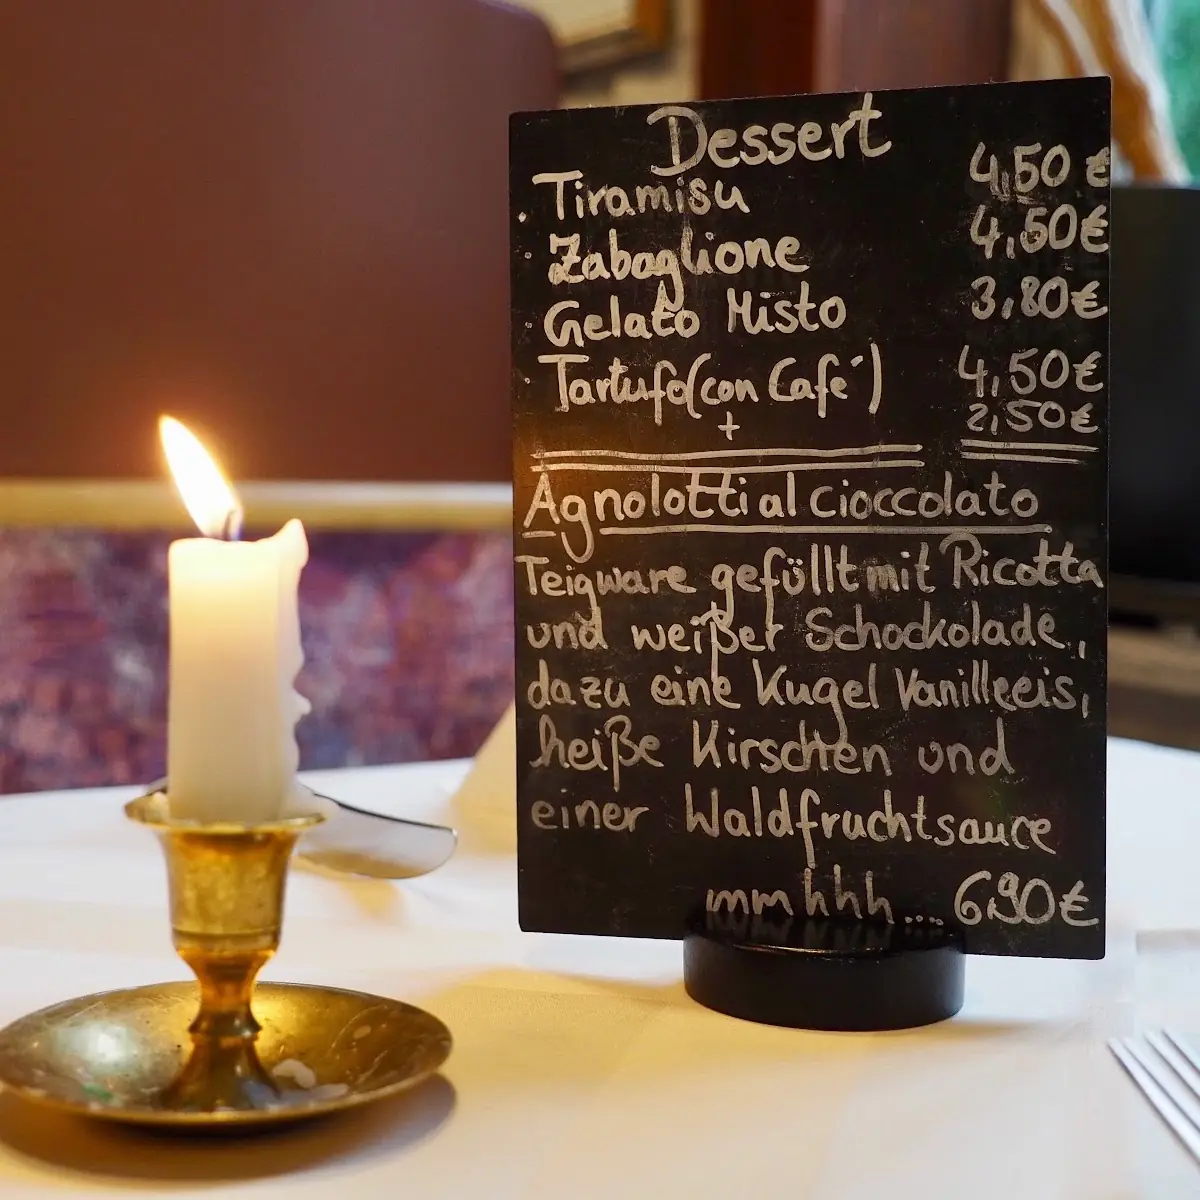 Dessert
· Tiramisu 4,50 €
· Zabaglione 4,50€
· Gelato Misto 3,80€
· Tartufo(con Cafe´) 4,50€
+ 2,50€
Agnolotti al cioccolato
Teigware gefüllt mit Ricotta
und weißer Schockolade,
dazu eine Kugel Vanilleeis,
heiße Kirschen und
einer Waldfruchtsauce
mmhhh... 6,90€